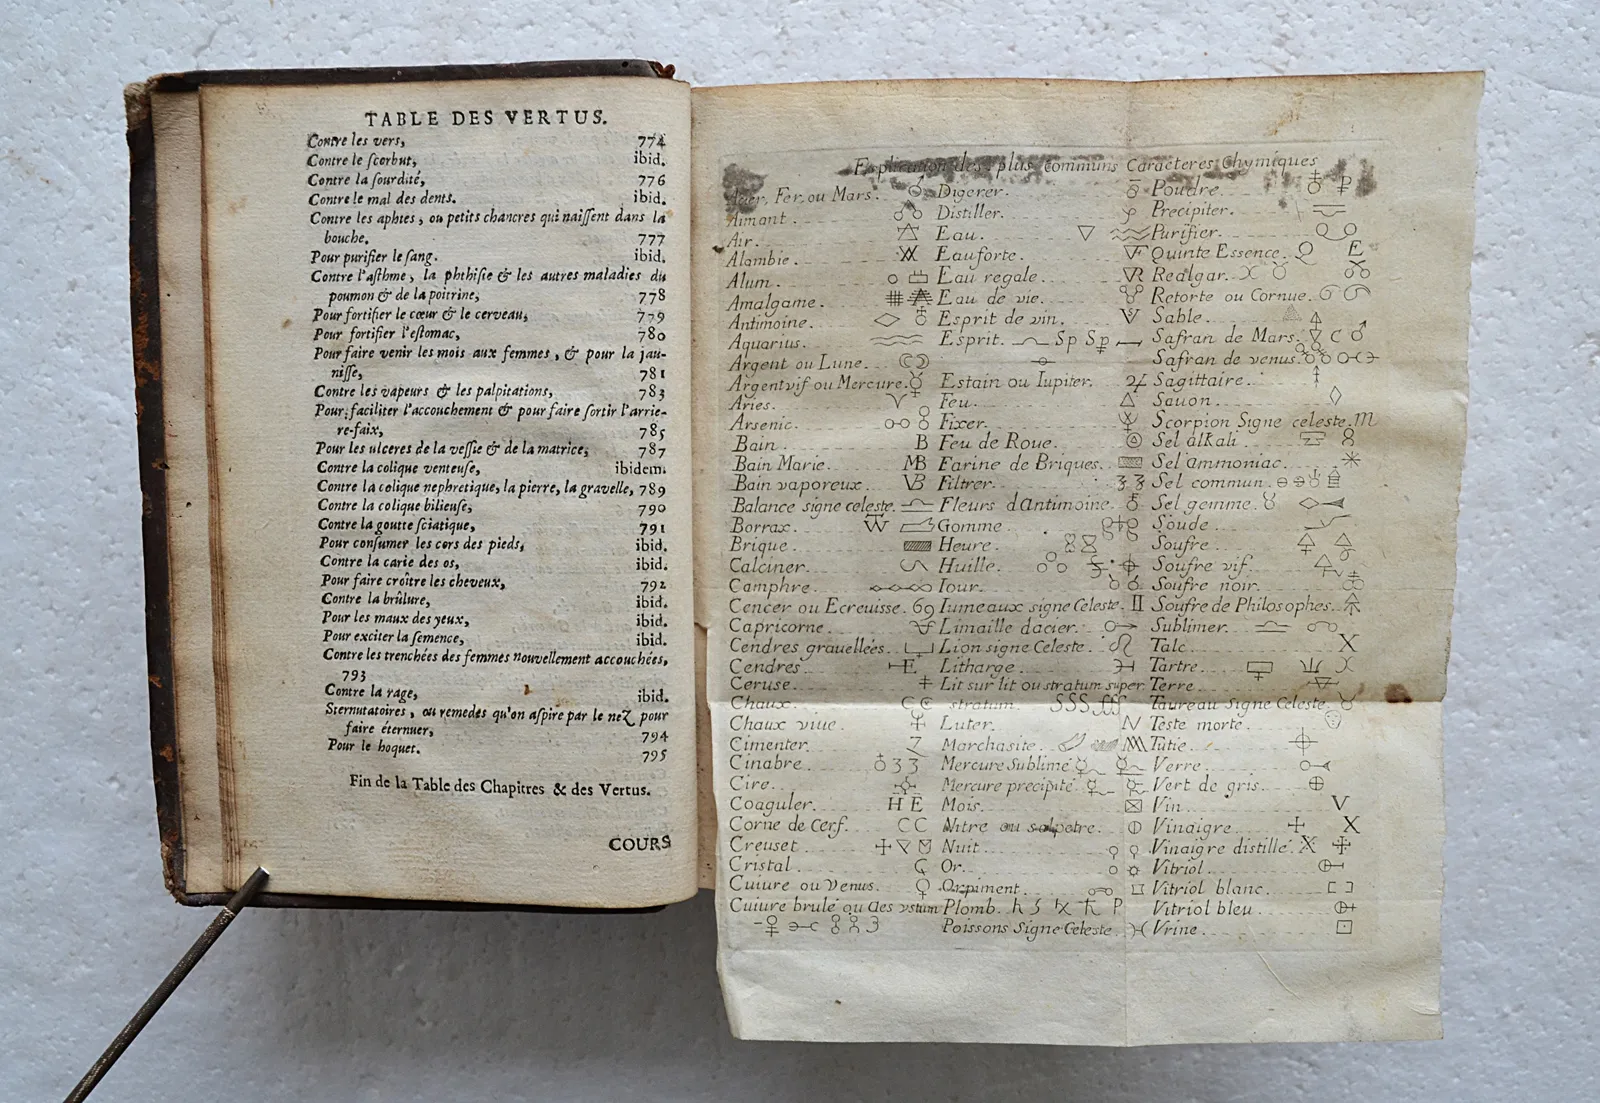 TABLE DES VERTUS.
Contre les vers, 774
Contre le scorbut, ibid.
Contre la surdité, 776
Contre le mal des dents. ibid.
Contre les aphtes, ou petits chancres qui naissent dans la
bouche. 777
Pour purifier le sang. ibid.
Contre l'asthme, la phthisie & les autres maladies du
poumon & de la poitrine, 778
Pour fortifier le cœur & le cerveau, 779
Pour fortifier l'estomac, 780
Pour faire venir les mois aux femmes, & pour la jau-
nisse, 781
Contre les vapeurs & les palpitations, 783
Pour faciliter l'accouchement & pour faire sortir l'arrie-
re-faix, 785
Pour les ulceres de la vessie & de la matrice, 787
Contre la colique venteuse, ibidem.
Contre la colique nephretique, la pierre, la gravelle, 789
Contre la colique bilieuse, 790
Contre la goutte sciatique, 791
Pour consumer les cors des pieds, ibid.
Contre la carie des os, ibid.
Pour faire croître les cheveux, 792
Contre la brûlure, ibid.
Pour les maux des yeux, ibid.
Pour exciter la semence, ibid.
Contre les trenchées des femmes nouvellement accouchées,
793
Contre la rage, ibid.
Sternutatoires, ou remedes qu'on aspire par le nez pour
faire éternuer, 794
Pour le hoquet. 795
Fin de la Table des Chapitres & des Vertus.
COURS
Explication des plus communs Caracteres Chymiques
Acier, Fer, ou Mars.
Aimant.
Air.
Alambic.
Alum.
Amalgame.
Antimoine.
Aquarius.
Argent ou Lune.
Argent vif ou Mercure.
Aries.
Arsenic.
Bain. B
Bain Marie. MB
Bain vaporeux. VB
Balance signe celeste.
Borrax.
Brique.
Calciner.
Camphre
Cencer ou Ecreuisse. 69
Capricorne.
Cendres grauellées.
Cendres E
Ceruse.
Chaux. CC
Chaux viue
Cimenter. Z
Cinabre
Cire.
Coaguler. HE
Corne de Cerf. CC
Creuset
Cristal
Cuiure ou Venus.
Cuiure brulé ou aes vstum
Digerer.
Distiller.
Eau.
Eau forte.
Eau regale.
Eau de vie.
Esprit de vin. V
Esprit. Sp Sp
Estain ou Iupiter.
Feu.
Fixer.
Feu de Roue.
Farine de Briques.
Filtrer.
Fleurs d'Antimoine.
Gomme.
Heure.
Huille.
Iour.
Iumeaux signe Celeste. II
Limaille dacier.
Lion signe Celeste.
Litharge.
Lit sur lit ou stratum super
stratum. SSS fff
Luter.
Marchasite.
Mercure Sublimé
Mercure precipité
Mois.
Nitre ou salpetre.
Nuit.
Or.
Orpiment.
Plomb. P
Poissons Signe Celeste.
Poudre.
Precipiter.
Purifier.
Quinte Essence. Q E
Realgar.
Retorte ou Cornue.
Sable.
Safran de Mars.
Safran de venus.
Sagittaire.
Sauon.
Scorpion Signe celeste. m
Sel alkali.
Sel ammoniac.
Sel commun.
Sel gemme.
Soude
Soufre
Soufre vif.
Soufre noir.
Soufre de Philosophes.
Sublimer.
Talc. X
Tartre.
Terre.
Taureau Signe Celeste.
Teste morte.
Tutie.
Verre
Vert de gris.
Vin. V
Vinaigre X
Vinaigre distillé.
Vitriol.
Vitriol blanc.
Vitriol bleu
Vrine.